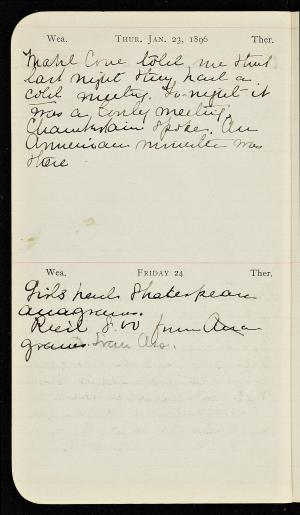 Wea. THUR. JAN. 23, 1896 Ther.
Mabel Cone told me that
last night they had a
cold meeting. To-night it
was a lovely meeting.
Chamberlain spoke. An
Armenian minister was
there
Wea. FRIDAY 24 Ther.
Girls' held Shakespeare
anagrams.
Rec'd 8.00 from Ana
grams.